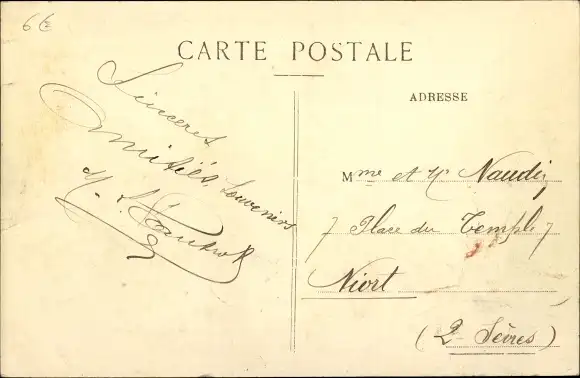 6€
CARTE POSTALE
Sincères
Amitiés, Souvenirs
ADRESSE
Mme et Mr Naudin
7 Place du Temple 7
Niort
(2 Sèvres)